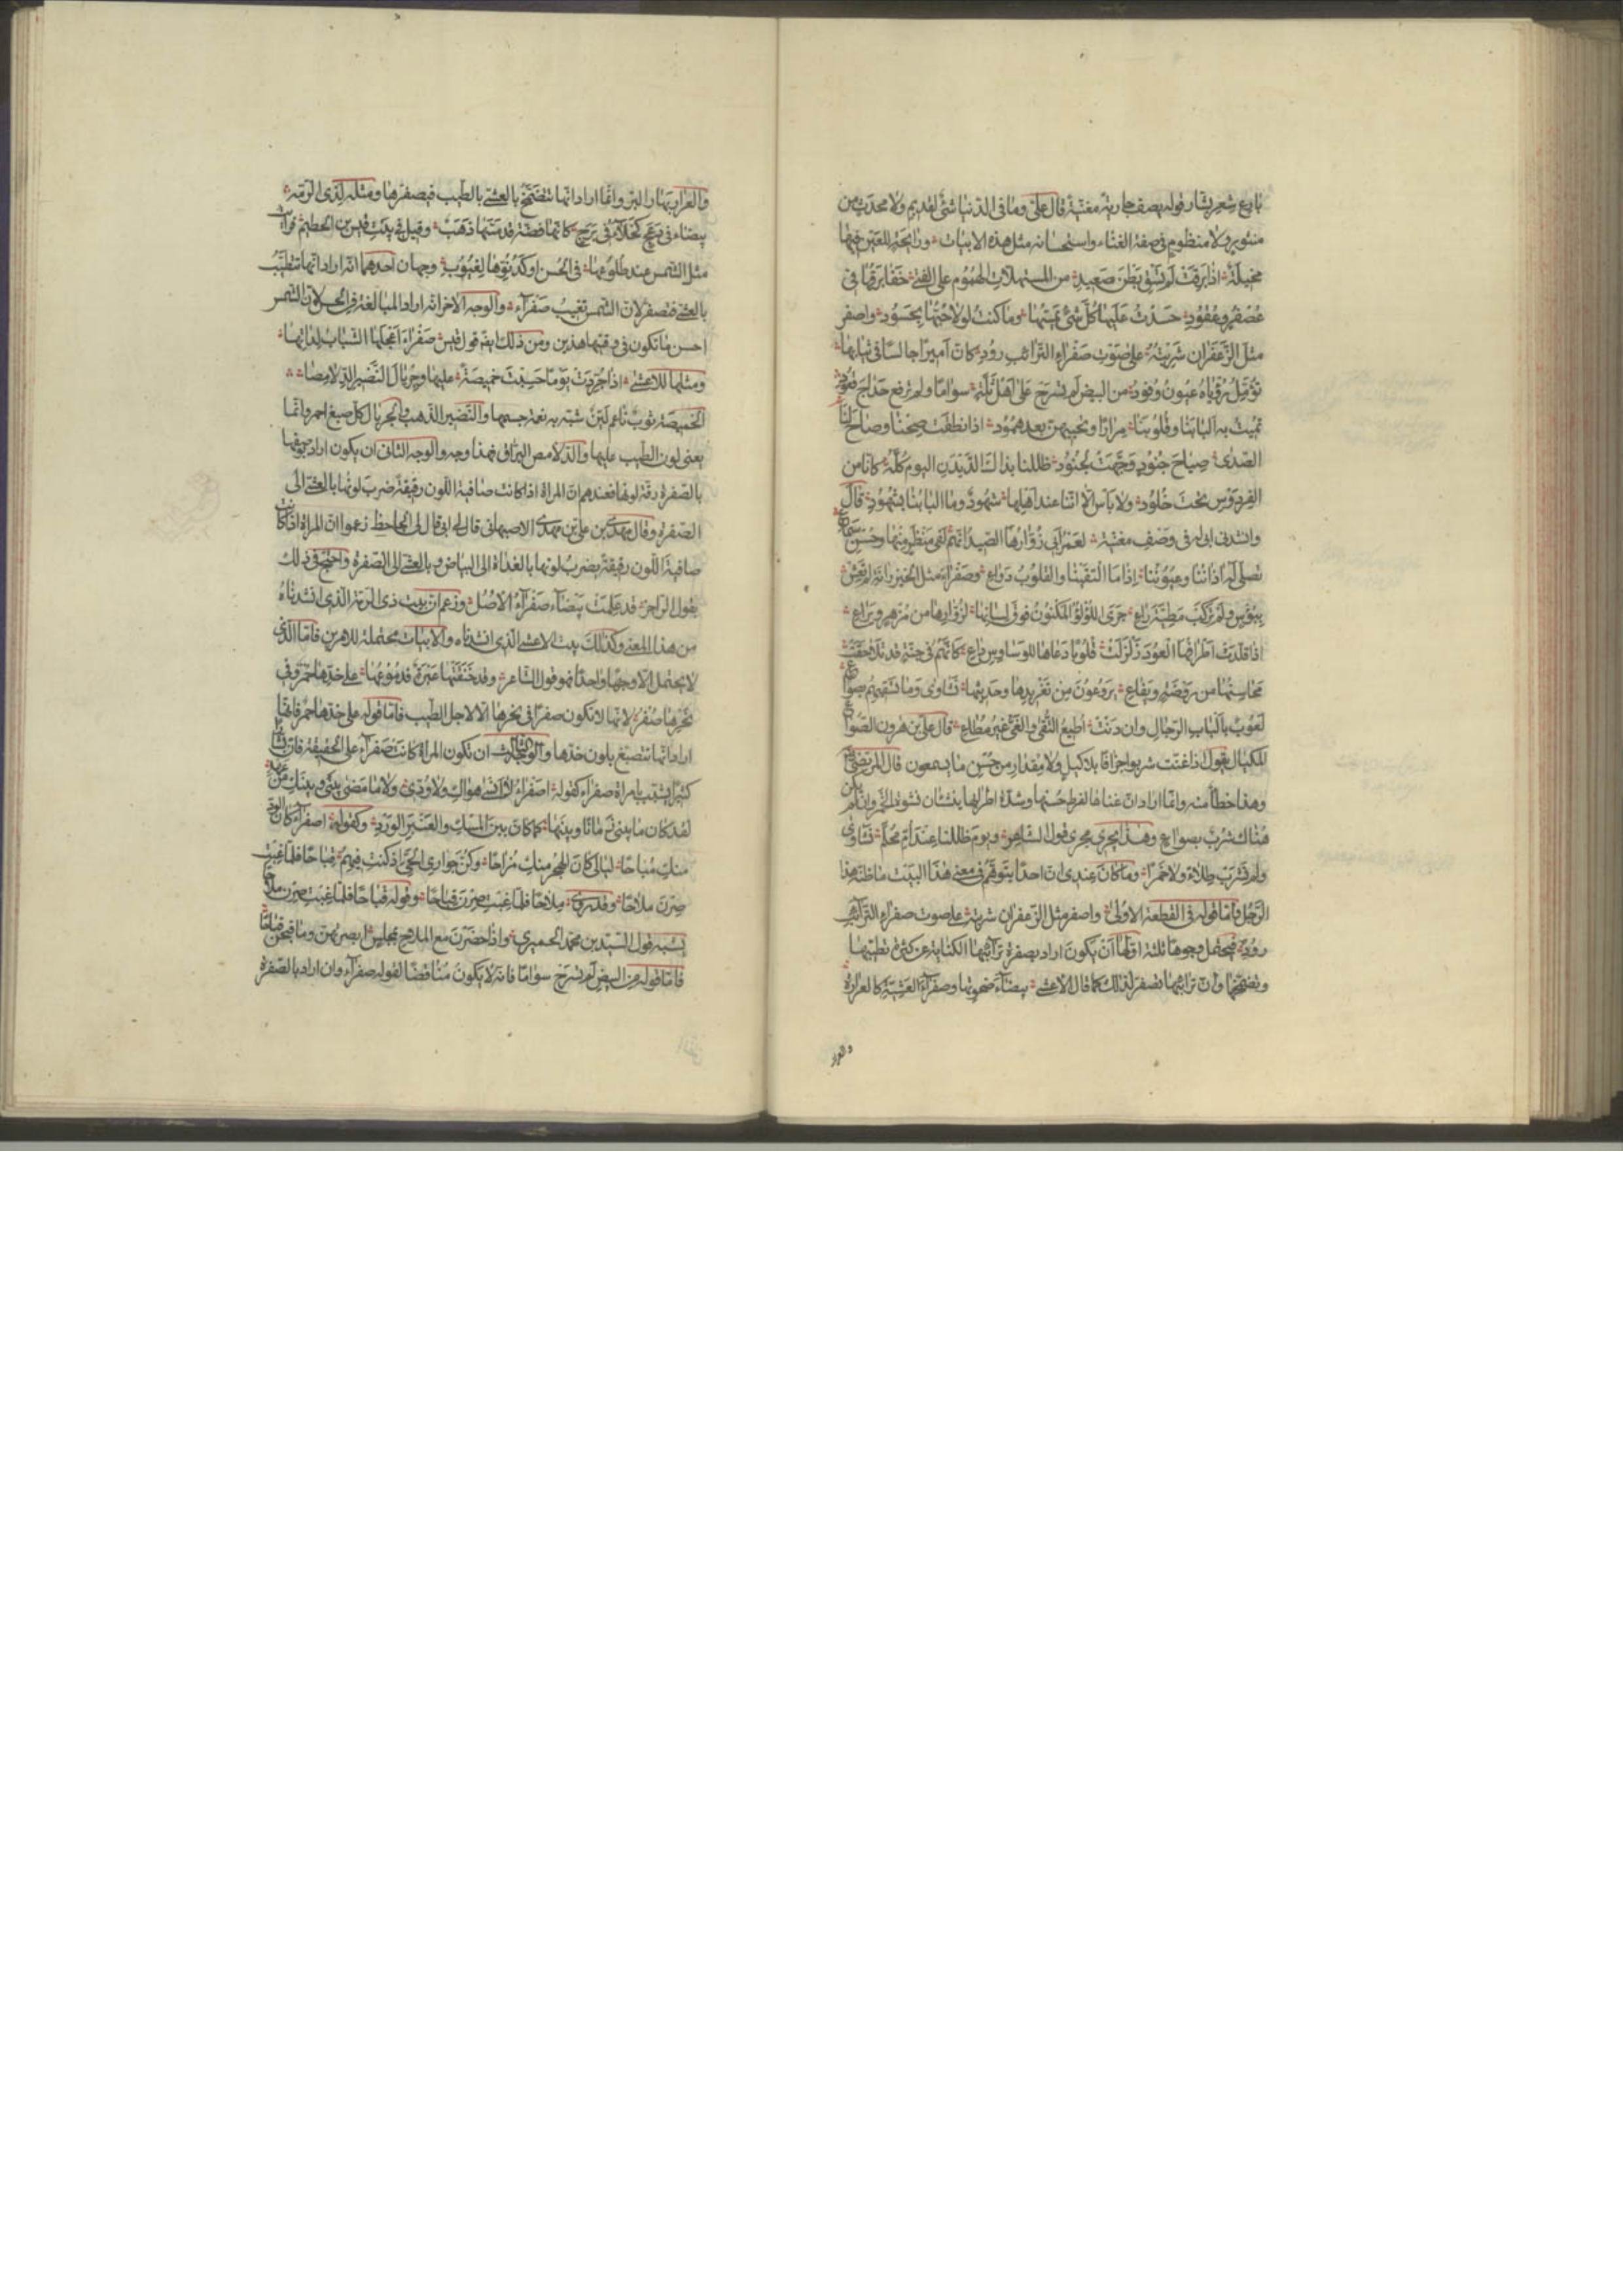 بارع شعر بشار قوله يصف جارية مغنية قال علي وما في الدنيا شئ لقديم ولا محدث من
منثور ولا منظوم في صفة الغناء واستحسانه مثل هذه الابيات ورائحة للعين فيها
مخيلة اذا برقت لم تسق بطن صعيد من المستهلات الهموم على الفتى خفا برقها في
عصفر وعقود حسدت عليها كل شئ يمسها وما كنت لولا حبها بحسود واصفر
مثل الزعفران شربته على صوت صفراء الترائب رود كان اميرا جالسا في ثيابها
تؤمل رؤياه عيون وفود من البيض لم تسرح على اهل ثلة سواما ولم ترفع حداج قعود
تميت به البابنا وقلوبنا مرارا وتحييهن بعد همود اذا نطقت صحنا وصاح لنا
الصدى صياح جنود وجهت لجنود ظللنا بذاك الديدن اليوم كله كانا من
الفردوس تحت خلود ولا باس الا اننا عند اهلها شهود وما البابنا بشهود قال
وانشدني ابي له في وصف مغنية لعمر ابي زوارها الصيد انهم لفي منظر منها وحسن سماع
تصلي لها اذاننا وعيوننا اذا ما التقينا والقلوب دواع وصفراء مثل الخيزرانة لم تعش
ببؤس ولم تركب مطية راع جرى اللؤلؤ المكنون فوق لسانها لزوارها من مزهر ويراع
اذا قلدت اطرافها العود زلزلت قلوبا دعاها للوساوس داع كانهم في جنة قد تلاحقت
محاسنها من روضة ويفاع يروحون من تغريدها وحديثها نشاوى وما تسقيهم بصواع
لعوب بالباب الرجال وان دنت اطيع التقى والغي غير مطاع قال علي بن هرون الصواع
المكيال يقول اذا غنت شربوا جزافا بلا كيل ولا مقدار من حسن ما يسمعون قال المرتضى
وهذا خطأ منه وانما اراد ان غناها لفرط حسنها وشدة اطرابها ينشئان نشوة الخمر وان لم يكن
هناك شرب بصواع وهذا يجري مجرى قول الشاعر ويوم ظللنا عند ام محلم نشاوى
ولم نشرب طلاء ولا خمرا وما كان عندي ان احدا يتوهم في معنى هذا البيت ما ظنه هذا
الرجل فاما قوله في القطعة الاولى واصفر مثل الزعفران شربته على صوت صفراء الترائب
رود فيحتمل وجوها ثلثة اولها ان يكون اراد بصفرة ترائبها الكناية عن كثرة تطيبها
وتضمخها وان ترائبها تصفر لذلك كما قال الاعشى بيضاء ضحوتها وصفراء العشية كالعرارة
والعرار
والعرار بهار البر وانما اراد انها تتضمخ بالعشي بالطيب فيصفرها ومثله لذي الرمة
بيضاء في دعج كحلاء في برج كانها فضة قد مسها ذهب وقيل في بيت قيس بن الخطيم فرأيت
مثل الشمس عند طلوعها في الحسن او كدنوها لغيوب وجهان احدهما انه اراد انها تتطيب
بالعشي فتصفر لان الشمس تغيب صفراء والوجه الاخر انه اراد المبالغة في الحسن لان الشمس
احسن ما تكون في وقتيها هذين ومن ذلك ايضا قول قيس صفراء اعجلها الشباب لداتها
ومثلها للاعشى اذا جردت يوما حسبت خميصة عليها وجريال النضير الدلامصا
الخميصة ثوب ناعم لين شبه به نعمة جسمها والنضير الذهب والجريال كل صبغ احمر وانما
يعني لون الطيب عليها والدلامص البراق فهذا وجه والوجه الثاني ان يكون اراد بوصفها
بالصفرة رقة لونها فعندهم ان المراة اذا كانت صافية اللون رقيقة ضرب لونها بالعشي الى
الصفرة وقال مهدي بن علي بن مهدي الاصبهاني قال لي ابي قال لي الجاحظ زعموا ان المراة اذا كانت
صافية اللون رقيقة يضرب لونها بالغداة الى البياض وبالعشي الى الصفرة واحتج في ذلك
بقول الراجز قد علمت بيضاء صفراء الاصل وزعم ان بيت ذي الرمة الذي انشدناه
من هذا المعنى وكذلك بيت الاعشى الذي انشدناه والابيات محتملة للامرين فاما الذي
لا يحتمل الا وجها واحدا فهو قول الشاعر وقد خنقتها عبرة فدموعها على خدها حمر وفي
نحرها صفر لانها لا تكون صفرا في نحرها الا لاجل الطيب فاما قوله على خدها حمر فانما
اراد انها تنصبغ بلون خدها والوجه الثالث ان تكون المراة كانت صفراء على الحقيقة فان بشارا
كثيرا يشبب بامراة صفراء كقوله اصفراء لا انسى هواك ولا ودي ولا ما مضى بيني وبينك من عهد
لقد كان ما بيني زمانا وبينها كما كان بين المسك والعنبر الورد وكقوله اصفراء كان الود
منك مباحا ليالي كان الهجر منك مزاحا وكن جواري الحي اذ كنت فيهم قباحا فلما غبت
صرن ملاحا وقد روي ملاحا فلما غبت صرن قباحا وقوله قباحا فلما غبت صرن ملاحا
يشبه قول السيد بن محمد الحميري واذا حضرن مع الملاح بمجلس ابصرتهن وما قبحن قباحا
فاما قوله من البيض لم تسرح سواما فانه لا يكون مناقضا لقوله صفراء وان اراد بالصفرة